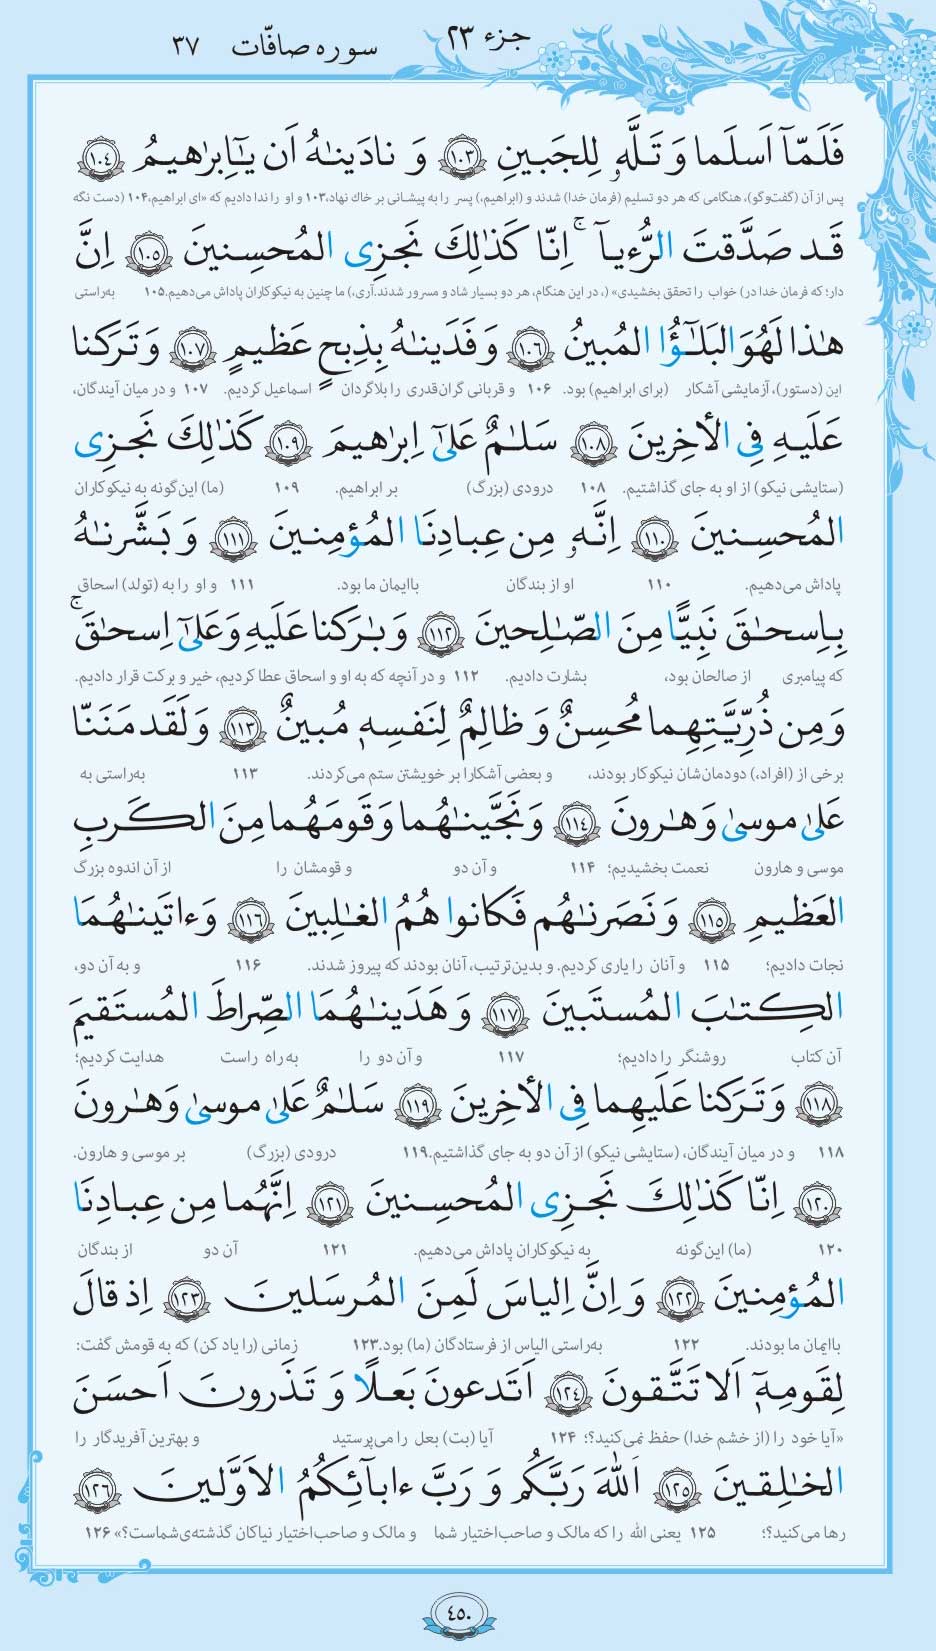 جزء ۲۳ سوره صافّات ۳۷
فَلَمّآ اَسلَما وَ تَلَّهٗ لِلجَبينِ ﴿۱۰۳﴾ وَ نادَينٰهُ اَن يٰٓاِبرٰهيمُ ﴿۱۰۴﴾
پس از آن (گفت‌وگو)، هنگامی که هر دو تسلیم (فرمان خدا) شدند و (ابراهیم،) پسر را به پیشانی بر خاك نهاد، ۱۰۳ و او را ندا دادیم که «ای ابراهیم، ۱۰۴ (دست نگه
قَد صَدَّقتَ الرُّءيآ ۚ اِنّا كَذٰلِكَ نَجزِى المُحسِنينَ ﴿۱۰۵﴾ اِنَّ
دار؛ که فرمان خدا در) خواب را تحقق بخشیدی» (، در این هنگام، هر دو بسیار شاد و مسرور شدند. آری،) ما چنین به نیکوکاران پاداش می‌دهیم. ۱۰۵ به‌راستی
هٰذا لَهُوَ البَلٰٓؤُا المُبينُ ﴿۱۰۶﴾ وَ فَدَينٰهُ بِذِبحٍ عَظيمٍ ﴿۱۰۷﴾ وَ تَرَكنا
این (دستور)، آزمایشی آشکار (برای ابراهیم) بود. ۱۰۶ و قربانی گران‌قدری را بلاگردان اسماعیل کردیم. ۱۰۷ و در میان آیندگان،
عَلَيهِ فِى الأخِرينَ ﴿۱۰۸﴾ سَلٰمٌ عَلىٰٓ اِبرٰهيمَ ﴿۱۰۹﴾ كَذٰلِكَ نَجزِى
(ستایشی نیکو) از او به جای گذاشتیم. ۱۰۸ درودی (بزرگ) بر ابراهیم. ۱۰۹ (ما) این‌گونه به نیکوکاران
المُحسِنينَ ﴿۱۱۰﴾ اِنَّهٗ مِن عِبادِنَا المُؤمِنينَ ﴿۱۱۱﴾ وَ بَشَّرنٰهُ
پاداش می‌دهیم. ۱۱۰ او از بندگان باایمان ما بود. ۱۱۱ و او را به (تولد) اسحاق
بِاِسحٰقَ نَبِيًّا مِنَ الصّٰلِحينَ ﴿۱۱۲﴾ وَ بٰرَكنا عَلَيهِ وَ عَلىٰٓ اِسحٰقَ ۚ
که پیامبری از صالحان بود، بشارت دادیم. ۱۱۲ و در آنچه که به او و اسحاق عطا کردیم، خیر و برکت قرار دادیم.
وَ مِن ذُرِّيَّتِهِما مُحسِنٌ وَ ظالِمٌ لِنَفسِهٖ مُبينٌ ﴿۱۱۳﴾ وَ لَقَد مَنَنّا
برخی از (افراد،) دودمان‌شان نیکوکار بودند، و بعضی آشکارا بر خویشتن ستم می‌کردند. ۱۱۳ به‌راستی به
عَلىٰ موسىٰ وَ هٰرونَ ﴿۱۱۴﴾ وَ نَجَّينٰهُما وَ قَومَهُما مِنَ الكَربِ
موسی و هارون نعمت بخشیدیم؛ ۱۱۴ و آن دو و قومشان را از آن اندوه بزرگ
العَظيمِ ﴿۱۱۵﴾ وَ نَصَرنٰهُم فَكانوا هُمُ الغٰلِبينَ ﴿۱۱۶﴾ وَ ءاتَينٰهُمَا
نجات دادیم؛ ۱۱۵ و آنان را یاری کردیم. و بدین‌ترتیب، آنان بودند که پیروز شدند. ۱۱۶ و به آن دو،
الكِتٰبَ المُستَبينَ ﴿۱۱۷﴾ وَ هَدَينٰهُمَا الصِّراطَ المُستَقيمَ
آن کتاب روشنگر را دادیم؛ ۱۱۷ و آن دو را به‌راه راست هدایت کردیم؛
﴿۱۱۸﴾ وَ تَرَكنا عَلَيهِما فِى الأخِرينَ ﴿۱۱۹﴾ سَلٰمٌ عَلىٰ موسىٰ وَ هٰرونَ
۱۱۸ و در میان آیندگان، (ستایشی نیکو) از آن دو به جای گذاشتیم. ۱۱۹ درودی (بزرگ) بر موسی و هارون.
﴿۱۲۰﴾ اِنّا كَذٰلِكَ نَجزِى المُحسِنينَ ﴿۱۲۱﴾ اِنَّهُما مِن عِبادِنَا
۱۲۰ (ما) این‌گونه به نیکوکاران پاداش می‌دهیم. ۱۲۱ آن دو از بندگان
المُؤمِنينَ ﴿۱۲۲﴾ وَ اِنَّ اِلياسَ لَمِنَ المُرسَلينَ ﴿۱۲۳﴾ اِذ قالَ
باایمان ما بودند. ۱۲۲ به‌راستی الیاس از فرستادگان (ما) بود. ۱۲۳ زمانی (را یاد کن) که به قومش گفت:
لِقَومِهٖٓ اَلا تَتَّقونَ ﴿۱۲۴﴾ اَتَدعونَ بَعلًا وَ تَذَرونَ اَحسَنَ
«آیا خود را (از خشم خدا) حفظ نمی‌کنید؟؛ ۱۲۴ آیا (بت) بعل را می‌پرستید و بهترین آفریدگار را
الخٰلِقينَ ﴿۱۲۵﴾ اَللّٰهَ رَبَّكُم وَ رَبَّ ءابآئِكُمُ الاَوَّلينَ ﴿۱۲۶﴾
رها می‌کنید؟؛ ۱۲۵ یعنی الله را که مالک و صاحب‌اختیار شما و مالک و صاحب‌اختیار نیاکان گذشته‌ی‌شماست؟» ۱۲۶
۴۵۰